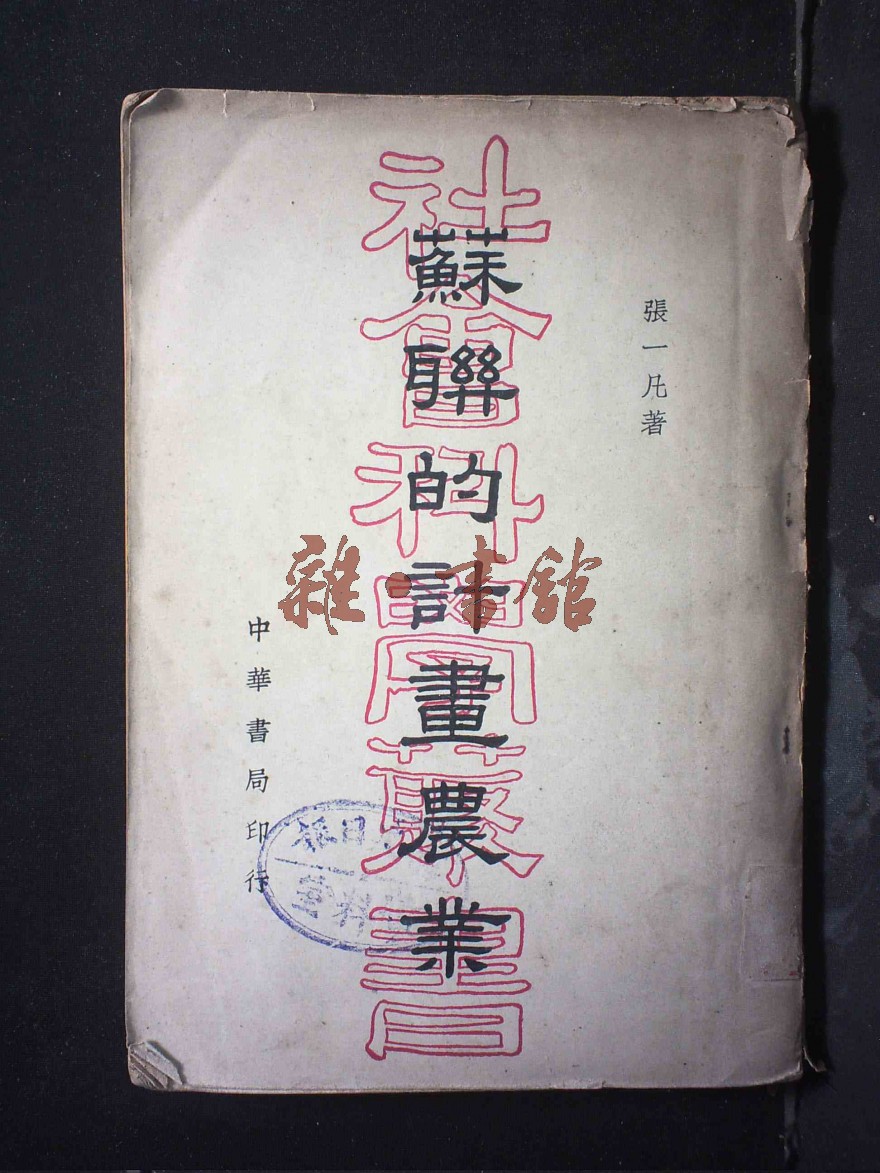 張一凡著
蘇聯的計畫農業
社會科學叢書
中華書局印行
雜·書館
日報